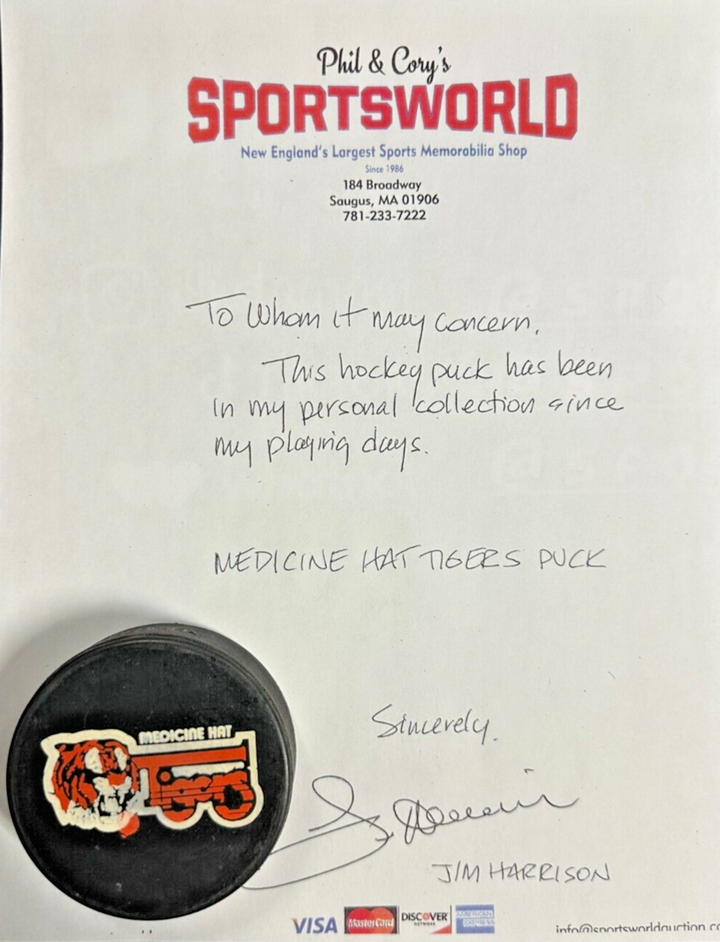 Phil & Cory's
SPORTSWORLD
New England's Largest Sports Memorabilia Shop
Since 1986
184 Broadway
Saugus, MA 01906
781-233-7222
To Whom it may concern,
This hockey puck has been
in my personal collection since
my playing days.
MEDICINE HAT TIGERS PUCK
MEDICINE HAT
Tigers
Sincerely,
JIM HARRISON
VISA MasterCard DISCOVER NETWORK AMERICAN EXPRESS
info@sportsworldauction.co